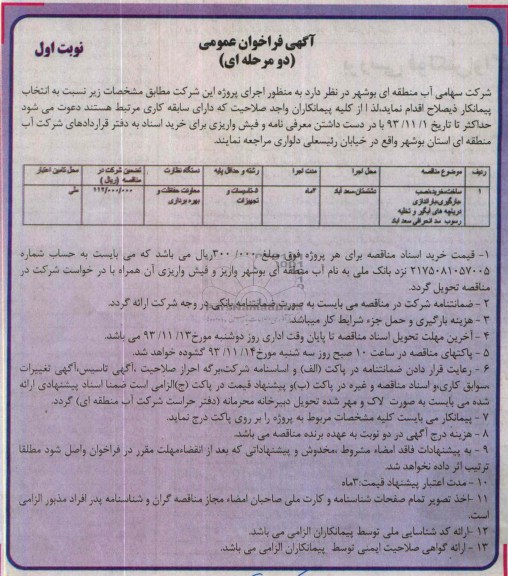 آگهی فراخوان عمومی
(دو مرحله ای)
نوبت اول
شرکت سهامی آب منطقه ای بوشهر در نظر دارد به منظور اجرای پروژه این شرکت مطابق مشخصات زیر نسبت به انتخاب
پیمانکار ذیصلاح اقدام نماید،لذا از کلیه پیمانکاران واجد صلاحیت که دارای سابقه کاری مرتبط هستند دعوت می شود
حداکثر تا تاریخ ۹۳/۱۱/۱ با در دست داشتن معرفی نامه و فیش واریزی برای خرید اسناد به دفتر قراردادهای شرکت آب
منطقه ای استان بوشهر واقع در خیابان رئیسعلی دلواری مراجعه نمایند.
ردیف موضوع مناقصه محل اجرا مدت اجرا رشته و حداقل پایه دستگاه نظارت تضمین شرکت در مناقصه (ریال) محل تامین اعتبار
۱ ساخت،خرید،نصب دشتستان-سعد آباد ۶ماه ۵-تاسیسات و معاونت حفاظت و ۱۱۲/۰۰۰/۰۰۰ ملی
بارگیری،باراندازی تجهیزات بهره برداری
دریچه های آبگیر و تخلیه
رسوب سد انحرافی سعد آباد
۱- قیمت خرید اسناد مناقصه برای هر پروژه فوق مبلغ ۳۰۰/۰۰۰ریال می باشد که می بایست به حساب شماره
۲۱۷۵۰۸۱۰۵۷۰۰۵ نزد بانک ملی به نام آب منطقه ای بوشهر واریز و فیش واریزی آن همراه با در خواست شرکت در
مناقصه تحویل گردد.
۲ - ضمانتنامه شرکت در مناقصه می بایست به صورت ضمانتنامه بانکی در وجه شرکت ارائه گردد.
۳ - هزینه بارگیری و حمل جزء شرایط کار میباشد.
۴ - آخرین مهلت تحویل اسناد مناقصه تا پایان وقت اداری روز دوشنبه مورخ۹۳/۱۱/۱۳ می باشد.
۵ - پاکتهای مناقصه در ساعت ۱۰ صبح روز سه شنبه مورخ۹۳/۱۱/۱۴ گشوده خواهد شد.
۶ - رعایت قرار دادن ضمانتنامه در پاکت (الف) و اساسنامه شرکت،برگه احراز صلاحیت ،آگهی تاسیس،آگهی تغییرات
سوابق کاری،و اسناد مناقصه و غیره در پاکت (ب)و پیشنهاد قیمت در پاکت (ج)الزامی است ضمنا اسناد پیشنهادی ارائه
شده می بایست به صورت لاک و مهر شده تحویل دبیرخانه محرمانه (دفتر حراست شرکت آب منطقه ای) گردد.
۷ - پیمانکار می بایست کلیه مشخصات مربوط به پروژه را بر روی پاکت درج نماید.
۸ - هزینه درج آگهی در دو نوبت به عهده برنده مناقصه می باشد.
۹ - به پیشنهادات فاقد امضاء مشروط ،مخدوش و پیشنهاداتی که بعد از انقضاءمهلت مقرر در فراخوان واصل شود مطلقا
ترتیب اثر داده نخواهد شد.
۱۰ - مدت اعتبار پیشنهاد قیمت:۳ماه
۱۱ -اخذ تصویر تمام صفحات شناسنامه و کارت ملی صاحبان امضاء مجاز مناقصه گران و شناسنامه پدر افراد مذبور الزامی
است.
۱۲ -ارائه کد شناسایی ملی توسط پیمانکاران الزامی می باشد.
۱۳ - ارائه گواهی صلاحیت ایمنی توسط پیمانکاران الزامی می باشد.